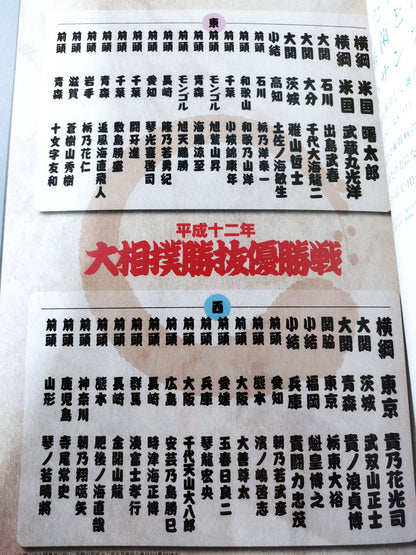 東
横綱 米国 曙太郎
横綱 米国 武蔵丸光洋
大関 石川 出島武春
大関 大分 千代大海龍二
大関 茨城 雅山哲士
小結 高知 土佐ノ海敏生
前頭 石川 栃乃洋泰一
前頭 和歌山 和歌乃山洋
前頭 千葉 小城錦康年
前頭 モンゴル 旭鷲山昇
前頭 青森 海鵬涼至
前頭 モンゴル 旭天鵬勝
前頭 長崎 隆乃若勇紀
前頭 愛知 琴光喜啓司
前頭 千葉 闘牙進
前頭 千葉 敷島勝盛
前頭 青森 追風海直飛人
前頭 岩手 栃乃花仁
前頭 滋賀 蒼樹山秀樹
前頭 青森 十文字友和
平成十二年
大相撲勝抜優勝戦
西
横綱 東京 貴乃花光司
大関 茨城 武双山正士
大関 青森 貴ノ浪貞博
関脇 東京 栃東大裕
小結 福岡 魁皇博之
小結 兵庫 貴闘力忠茂
前頭 愛知 朝乃若武彦
前頭 熊本 濱ノ嶋啓志
前頭 大阪 大善尊太
前頭 愛媛 玉春日良二
前頭 兵庫 琴龍宏央
前頭 大阪 千代天山大八郎
前頭 広島 安芸乃島勝巳
前頭 長崎 時津海正博
前頭 群馬 湊富士孝行
前頭 長崎 金開山龍
前頭 熊本 肥後ノ海直哉
前頭 神奈川 朝乃翔嚆矢
前頭 鹿児島 寺尾常史
前頭 山形 琴ノ若晴將